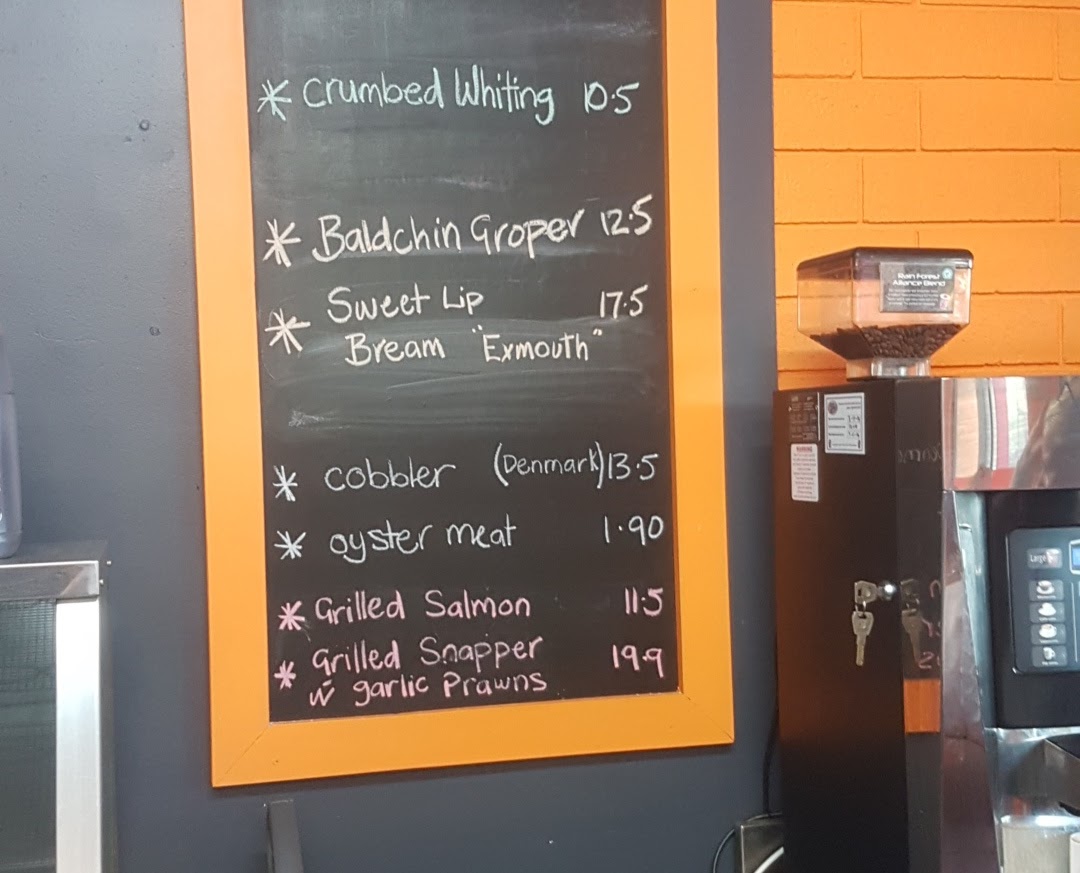 * Crumbed Whiting 10.5
* Baldchin Groper 12.5
* Sweet Lip 17.5
Bream "Exmouth"
* cobbler (Denmark) 13.5
* oyster meat 1.90
* Grilled Salmon 11.5
* Grilled Snapper 19.9
w garlic Prawns
Rain Forest
Alliance Blend
WARNING
Large